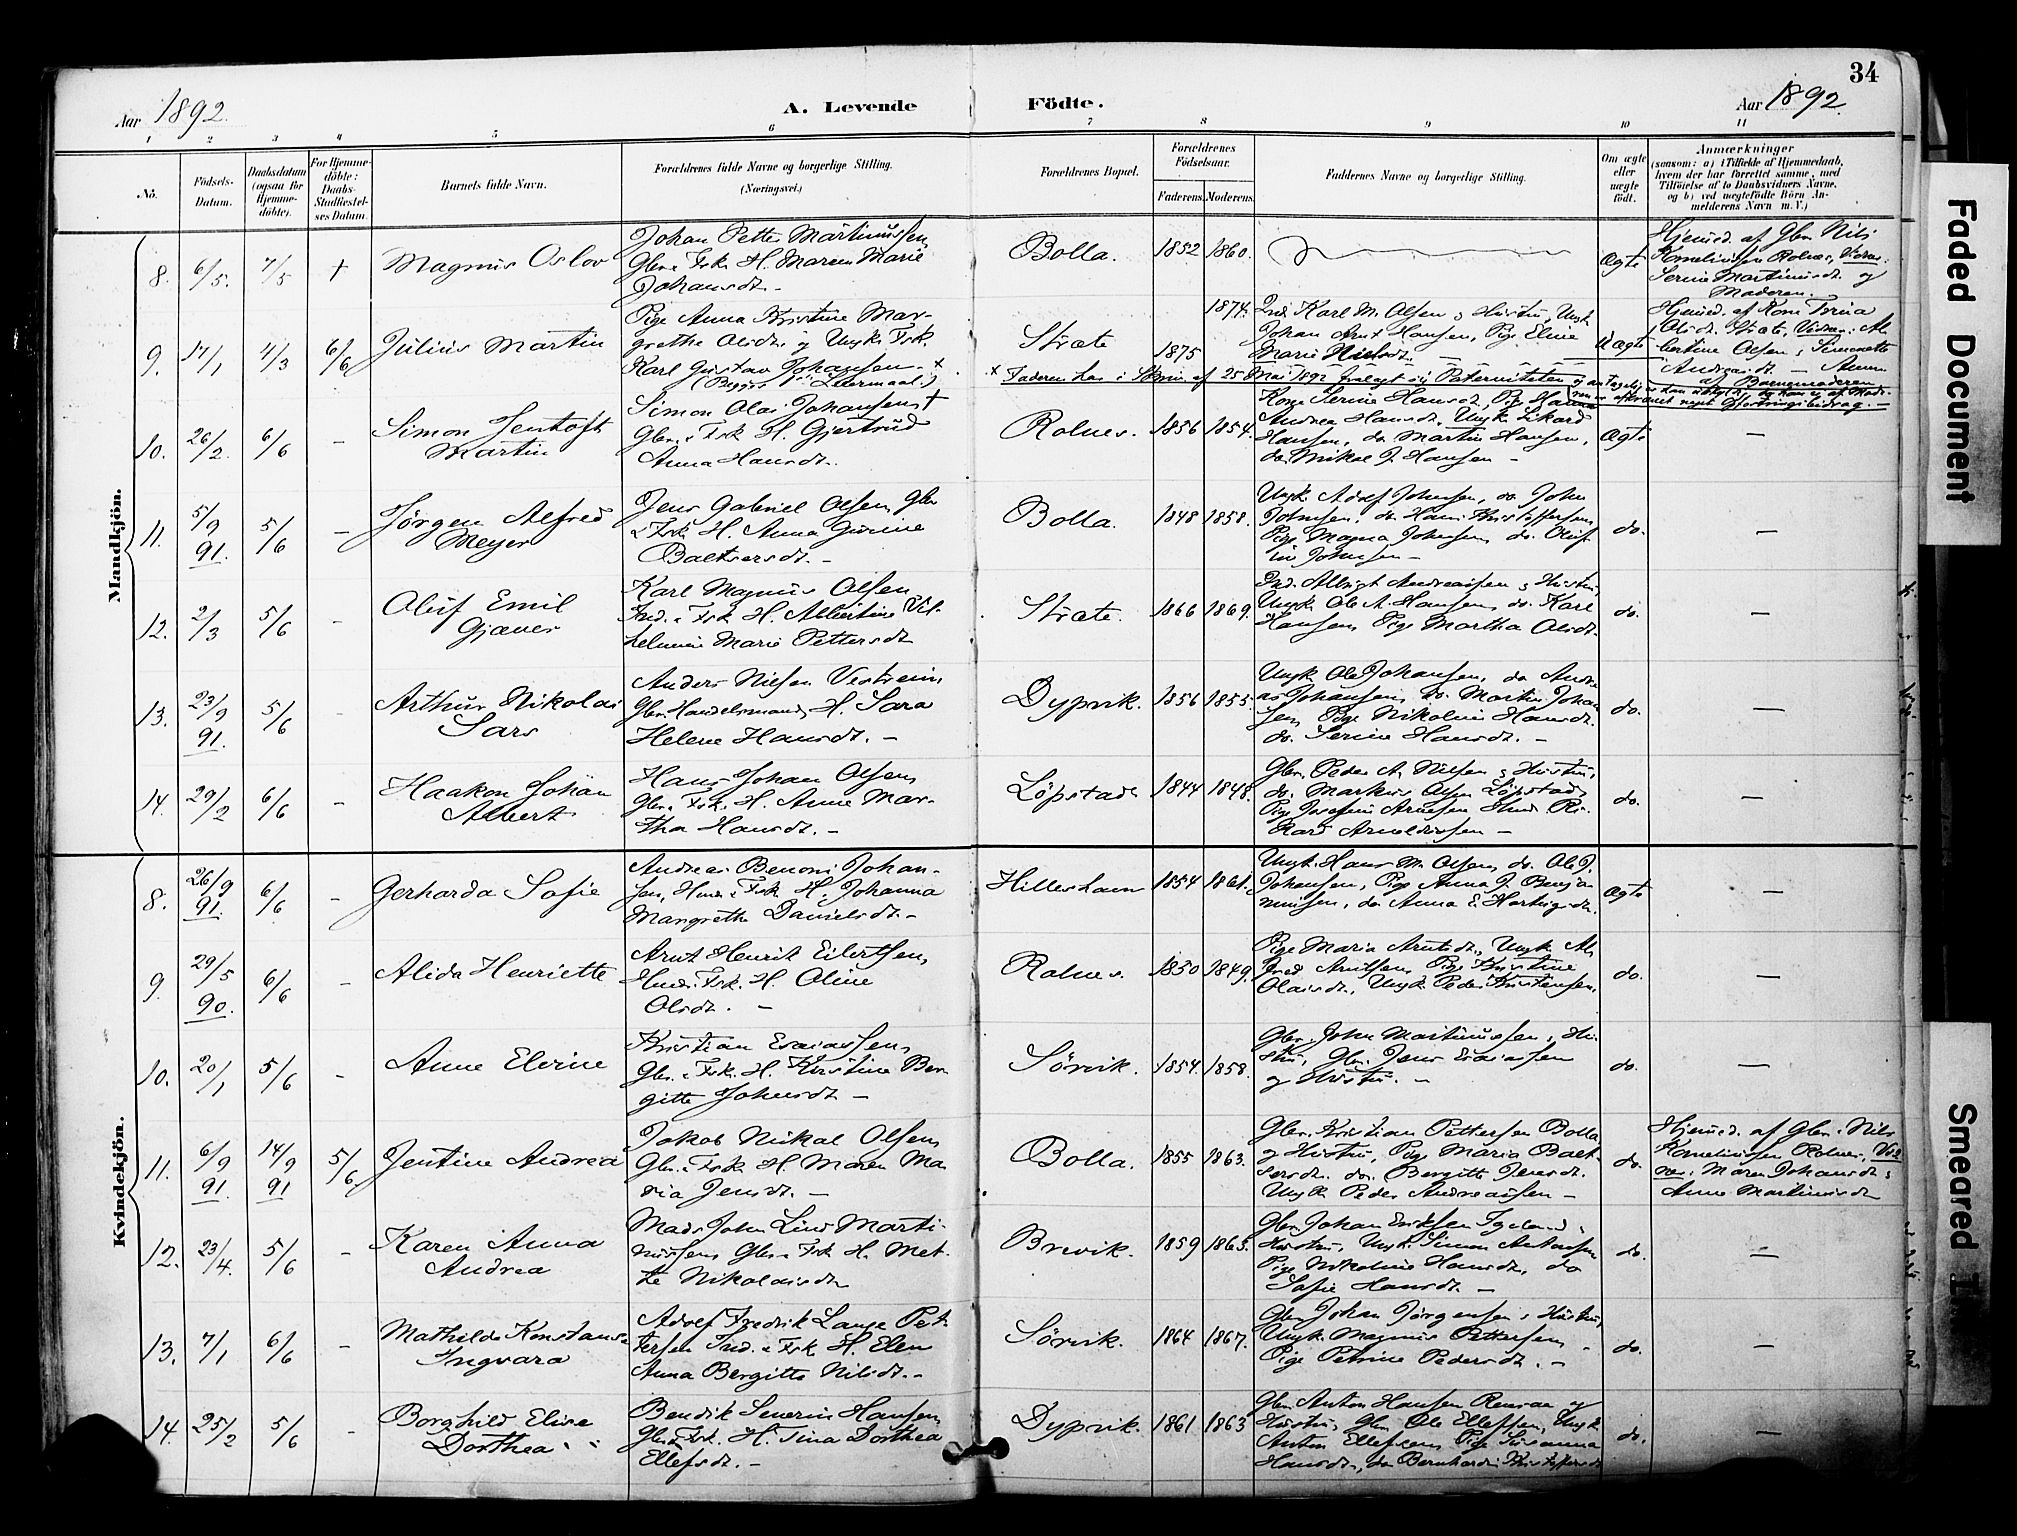 34
Aar 1892.
A. Levende
Födte.
Aar 1892.
1 2 3 4 5 6 7 8 9 10 11
No.
Födsels-
Datum.
Daabsdatum
(ogsaa for
Hjemme-
döbte).
For Hjemme-
döbte:
Daabs-
Stadfæstel-
ses Datum.
Barnets fulde Navn.
Forældrenes fulde Navne og borgerlige Stilling.
(Næringsvei.)
Forældrenes Bopæl.
Forældrenes
Födselsaar.
Faderens. Moderens.
Faddernes Navne og borgerlige Stilling.
Om ægte
eller
uægte
födt.
Anmærkninger
(saasom: a) i Tilfælde af Hjemmedaab,
hvem der har forrettet samme, med
Tilföielse af to Daabsvidners Navne,
og b) ved uægtefödte Börn An-
melderens Navn m. V.)
Mandkjön.
8. 6/5. 7/5 † Magnus Oslov
Johan Petter Martinussen,
Gbr. & Fsk. H. Maren Marie
Johansdt. -
Bolla. 1852 1860. Ægte
Hjemmed. af Gbr. Nils
Kornelius­sen Rolnes, Vidner:
Serine Martinusdt. og
Moderen.
9. 17/1 4/3 6/6 Julius Martin
Pige Anna Kristine Mar-
grethe Olsdt. og Ungk. Fsk.
Karl Gustav Johansen. x
(Begges 1ste Leiermaal.)
Stræte 1875 1874.
Ind. Karl M. Olsen & Hustru, Ungk.
Johan Arnt Hansen, Pige Eline
Marie Nielsdt. -
Uægte
Hjemmed. af Kone Trina
Olsdt. Stræte, Vidner: Al-
bertine Olsen & Simonette
Andreasdt. - Anm.
af Barnemoderen
x Faderen har i Skriv. af 25 Mai 1892 fralagt sig Paterniteten
10. 26/2. 6/6 - Simon Jentoft
Martin
Simon Olai Johansen †
Gbr. & Fsk. H. Gjertrud
Anna Hansdt.
Rolnes. 1856 1854.
Kone Serine Hansdt., Pige Hanna
Andrea Hansdt., Ungk. Rikard
Hansen, do. Martin Hansen,
do. Mikal J. Hansen -
Ægte -
11. 5/9 91. 5/6 - Jørgen Alfred
Meyer
Jens Gabriel Olsen, Gbr.
& Fsk. H. Anna Gurine
Baltsersdt. -
Bolla. 1848 1858.
Ungk. Adolf Johnsen, do. John
Johnsen, do. Hans Kristoffersen,
Pige Magna Johnsen, do. Oluf-
ine Johnsen -
do. -
12. 2/3 5/6 - Oluf Emil
Gjæver
Karl Magnus Olsen
Ind. & Fsk. H. Albertine Vil-
helmine Marie Pettersdt.
Stræte. 1866 1869.
Ind. Albrigt Andreassen & Hustru,
Ungk. Ole A. Hansen, do. Karl
Hansen, Pige Martha Olsdt.
do. -
13. 23/9 91. 5/6 - Arthur Nikolai
Sars
Anders Nielsen Vestreim
Gbr. Handelsmand, H. Sara
Helene Hansdt. -
Dyprik. 1856 1855.
Ungk. Ole Johansen, do. Andre-
as Johansen, do. Martin Johan-
sen, Pige Nikoline Hansdt.
do. Serine Hansdt. -
do. -
14. 29/2 6/6 - Haakon Johan
Albert
Hans Johan Olsen,
Gbr. & Fsk. H. Anne Mar-
tha Hansdt. -
Löpstad 1844 1848.
Gbr. Peder A. Nilsen & Hustru,
do. Markus Olsen Löpstad,
Pige Josefine Arnesen, Ri-
kard Arnoldussen -
do. -
Kvindekjön.
8. 26/9 91. 6/6 - Gerharda Sofie
Andreas Benoni Johan-
sen, Hmd. & Fsk. H. Johanna
Mangrethe Danielsdt. -
Hilleshamn 1854 1861.
Ungk. Hans M. Olsen, do. Ole J.
Johansen, Pige Anna J. Benja-
minsen, do. Anna E. Hartvigsdt.
Ægte -
9. 29/5 90. 6/6 - Alida Henriette
Arnt Henrik Eilertsen,
Hmd. & Fsk. H. Oline
Olsdt. -
Rolnes. 1850 1849.
Pige Maria Arntsdt., Ungk. Al-
fred Arntsen, Pige Kristine
Olaisdt., Ungk. Peder Kristensen.
do. -
10. 20/1 5/6 - Anne Elvine
Kristian Esaiassen,
Gbr. & Fsk. H. Kristine Ber-
gitte Johnsdt. -
Sörvik. 1854. 1858.
Gbr. John Martinussen & Hu-
stru, Gbr. Jens Esaiassen
og Hustru. -
do. -
11. 6/9 91. 14/9 91 5/6 Jentine Andrea
Jakob Mikal Olsen,
Gbr. & Fsk. H. Maren Ma-
ria Jensdt. -
Bolla. 1855 1863.
Gbr. Kristian Pettersen Bolla
og Hustru, Pige Maria Balt-
sersdt. do. Bergitte Jensdt.
Ungk. Peder Andreassen -
do.
Hjemmed. af Gbr. Nils
Korneliussen Rolnes, Vid-
ner: Maren Johansdt. &
Anne Martinusdt.
12. 23/4. 5/6 - Karen Anna
Andrea
Mads John Lind Marti-
nussen, Gbr. & Fsk. H. Met-
te Nikolaisdt.
Brevik. 1859 1863.
Gbr. Johan Eriksen &
Hustru, Ungk. Simon Antonsen
Pige Nikoline Hansdt., do.
Sofie Hansdt. -
do. -
13. 7/1 6/6 - Mathilde Konstanse
Ingvara
Adolf Fredrik Lange Pet-
tersen Ind. & Fsk. H. Elen
Anna Bergitte Nilsdt. -
Sörvik. 1864 1867.
Gbr. Johan Jörgensen & Hustru,
Ungk. Magnus Pettersen,
Pige Petrine Pedersdt. -
do. -
14. 25/2 5/6 - Borghild Elise
Dorthea
Bendik Severin Hansen,
Gbr. & Fsk. H. Sina Dorthea
Ellefsdt. -
Dyprik. 1861 1863
Gbr. Anton Hansen Rensaa og
Hustru, Gbr. Ole Ellefsen, Ungk.
Anton Ellefsen, Pige Susanna
Hansdt., do. Bernhardine Kristoffersdt.
do. -
Faded Document
Smeared